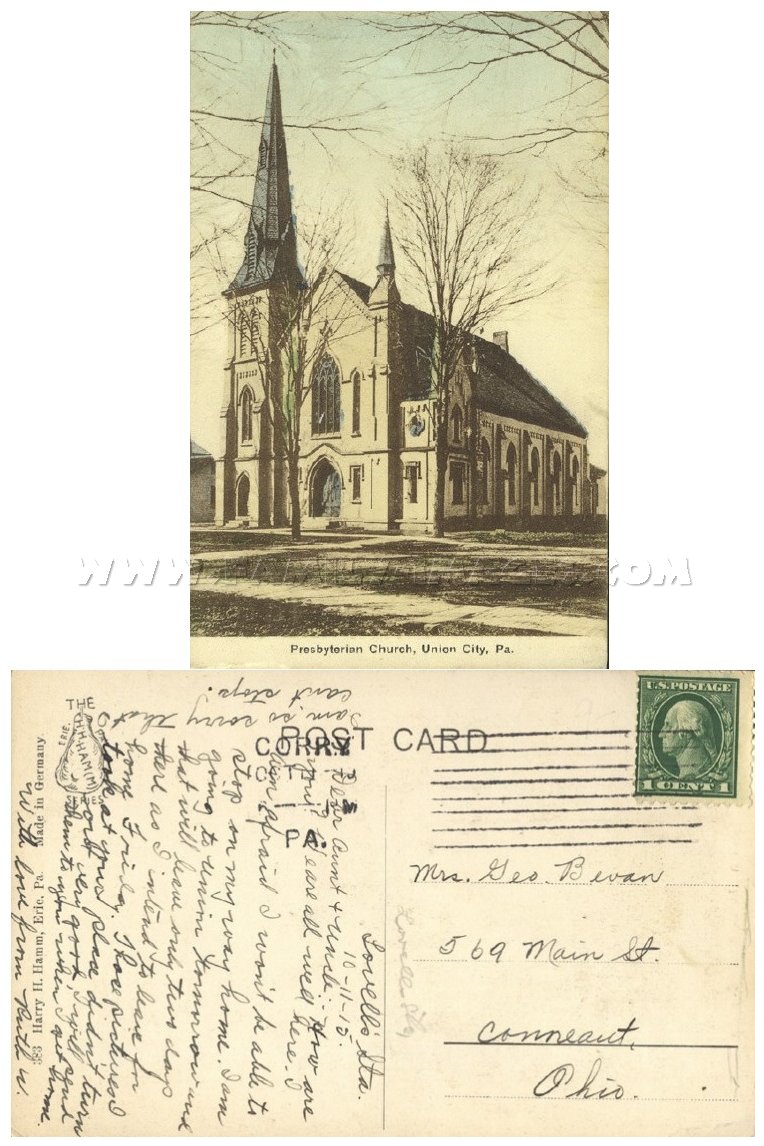 Presbyterian Church, Union City, Pa.
POST CARD
U.S. POSTAGE
1 CENT 1
CORRY
PA.
THE
HAMM
ERIE.
SERIES
383 Harry H. Hamm, Erie, Pa. Made in Germany.
Lovell's Sta.
10-11-15.
Dear Aunt & Uncle:- How are
you? We are all well here. I
am afraid I won't be able to
stop on my way home. I am
going to Union tomorrow and
that will leave only two days
there as I intend to leave for
home Friday. Those pictures I
took at your place didn't turn
out very good, I will send
them to you when I get home.
With love from Ruth W.
I am so sorry that I
can't stop.
Mrs. Geo. Bevan
569 Main St.
Conneaut,
Ohio.
Lovell Sta